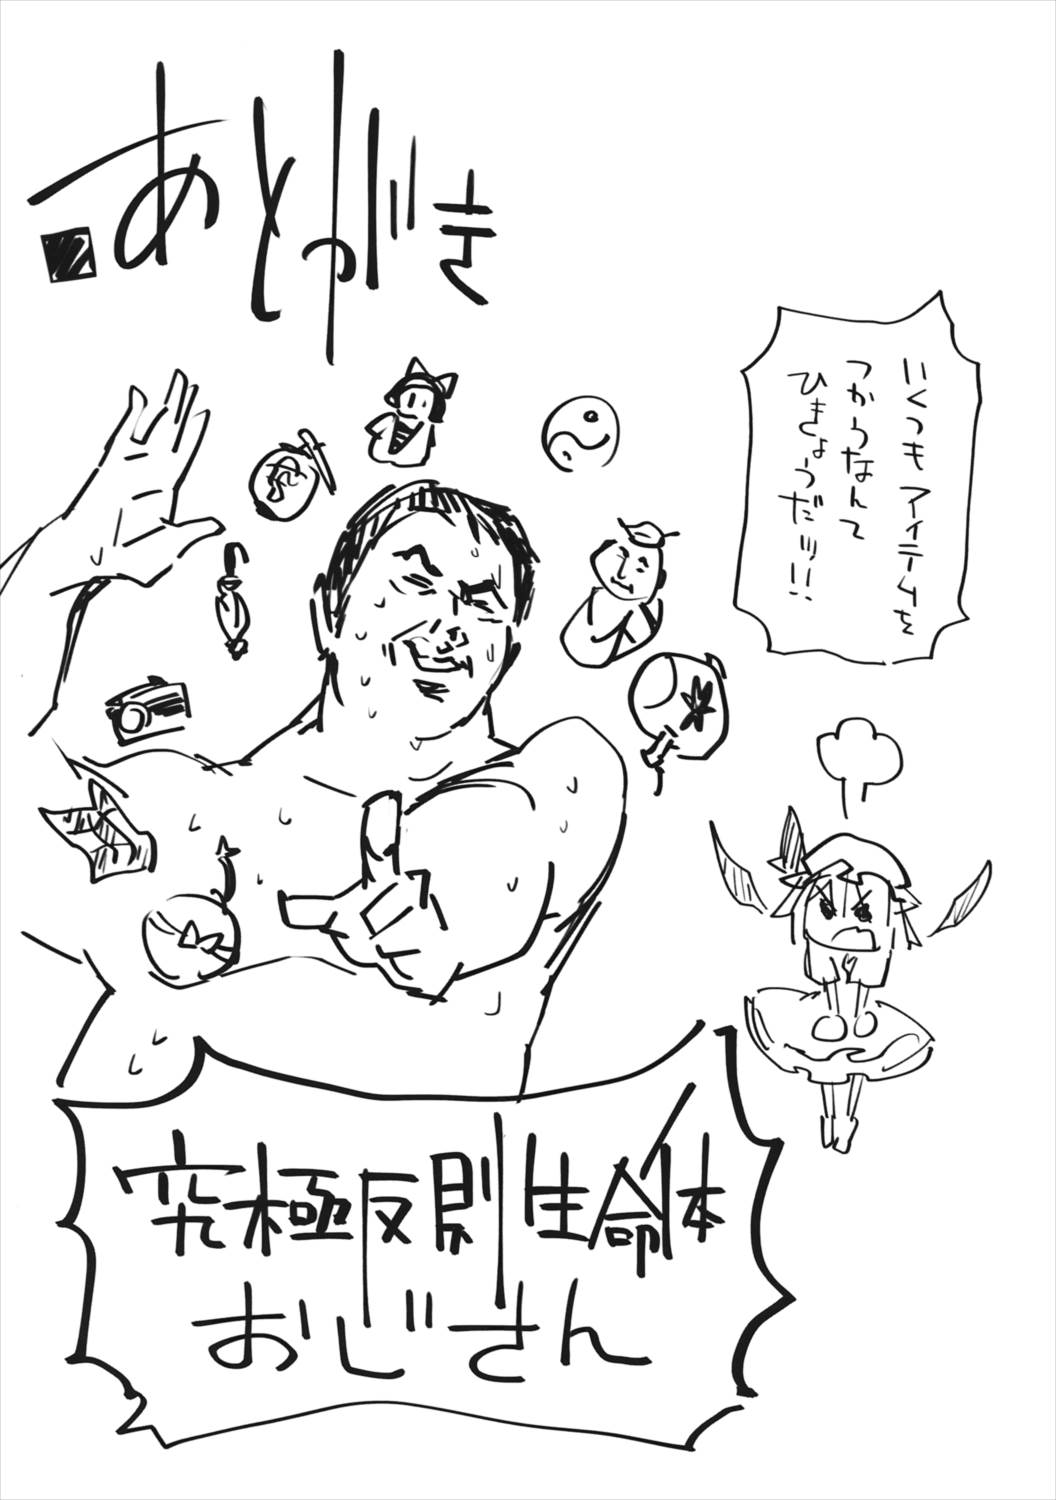 ■あとがき
いくつもアイテムを
つかうなんて
ひきょうだッ!!
究極反則生命体
おじさん